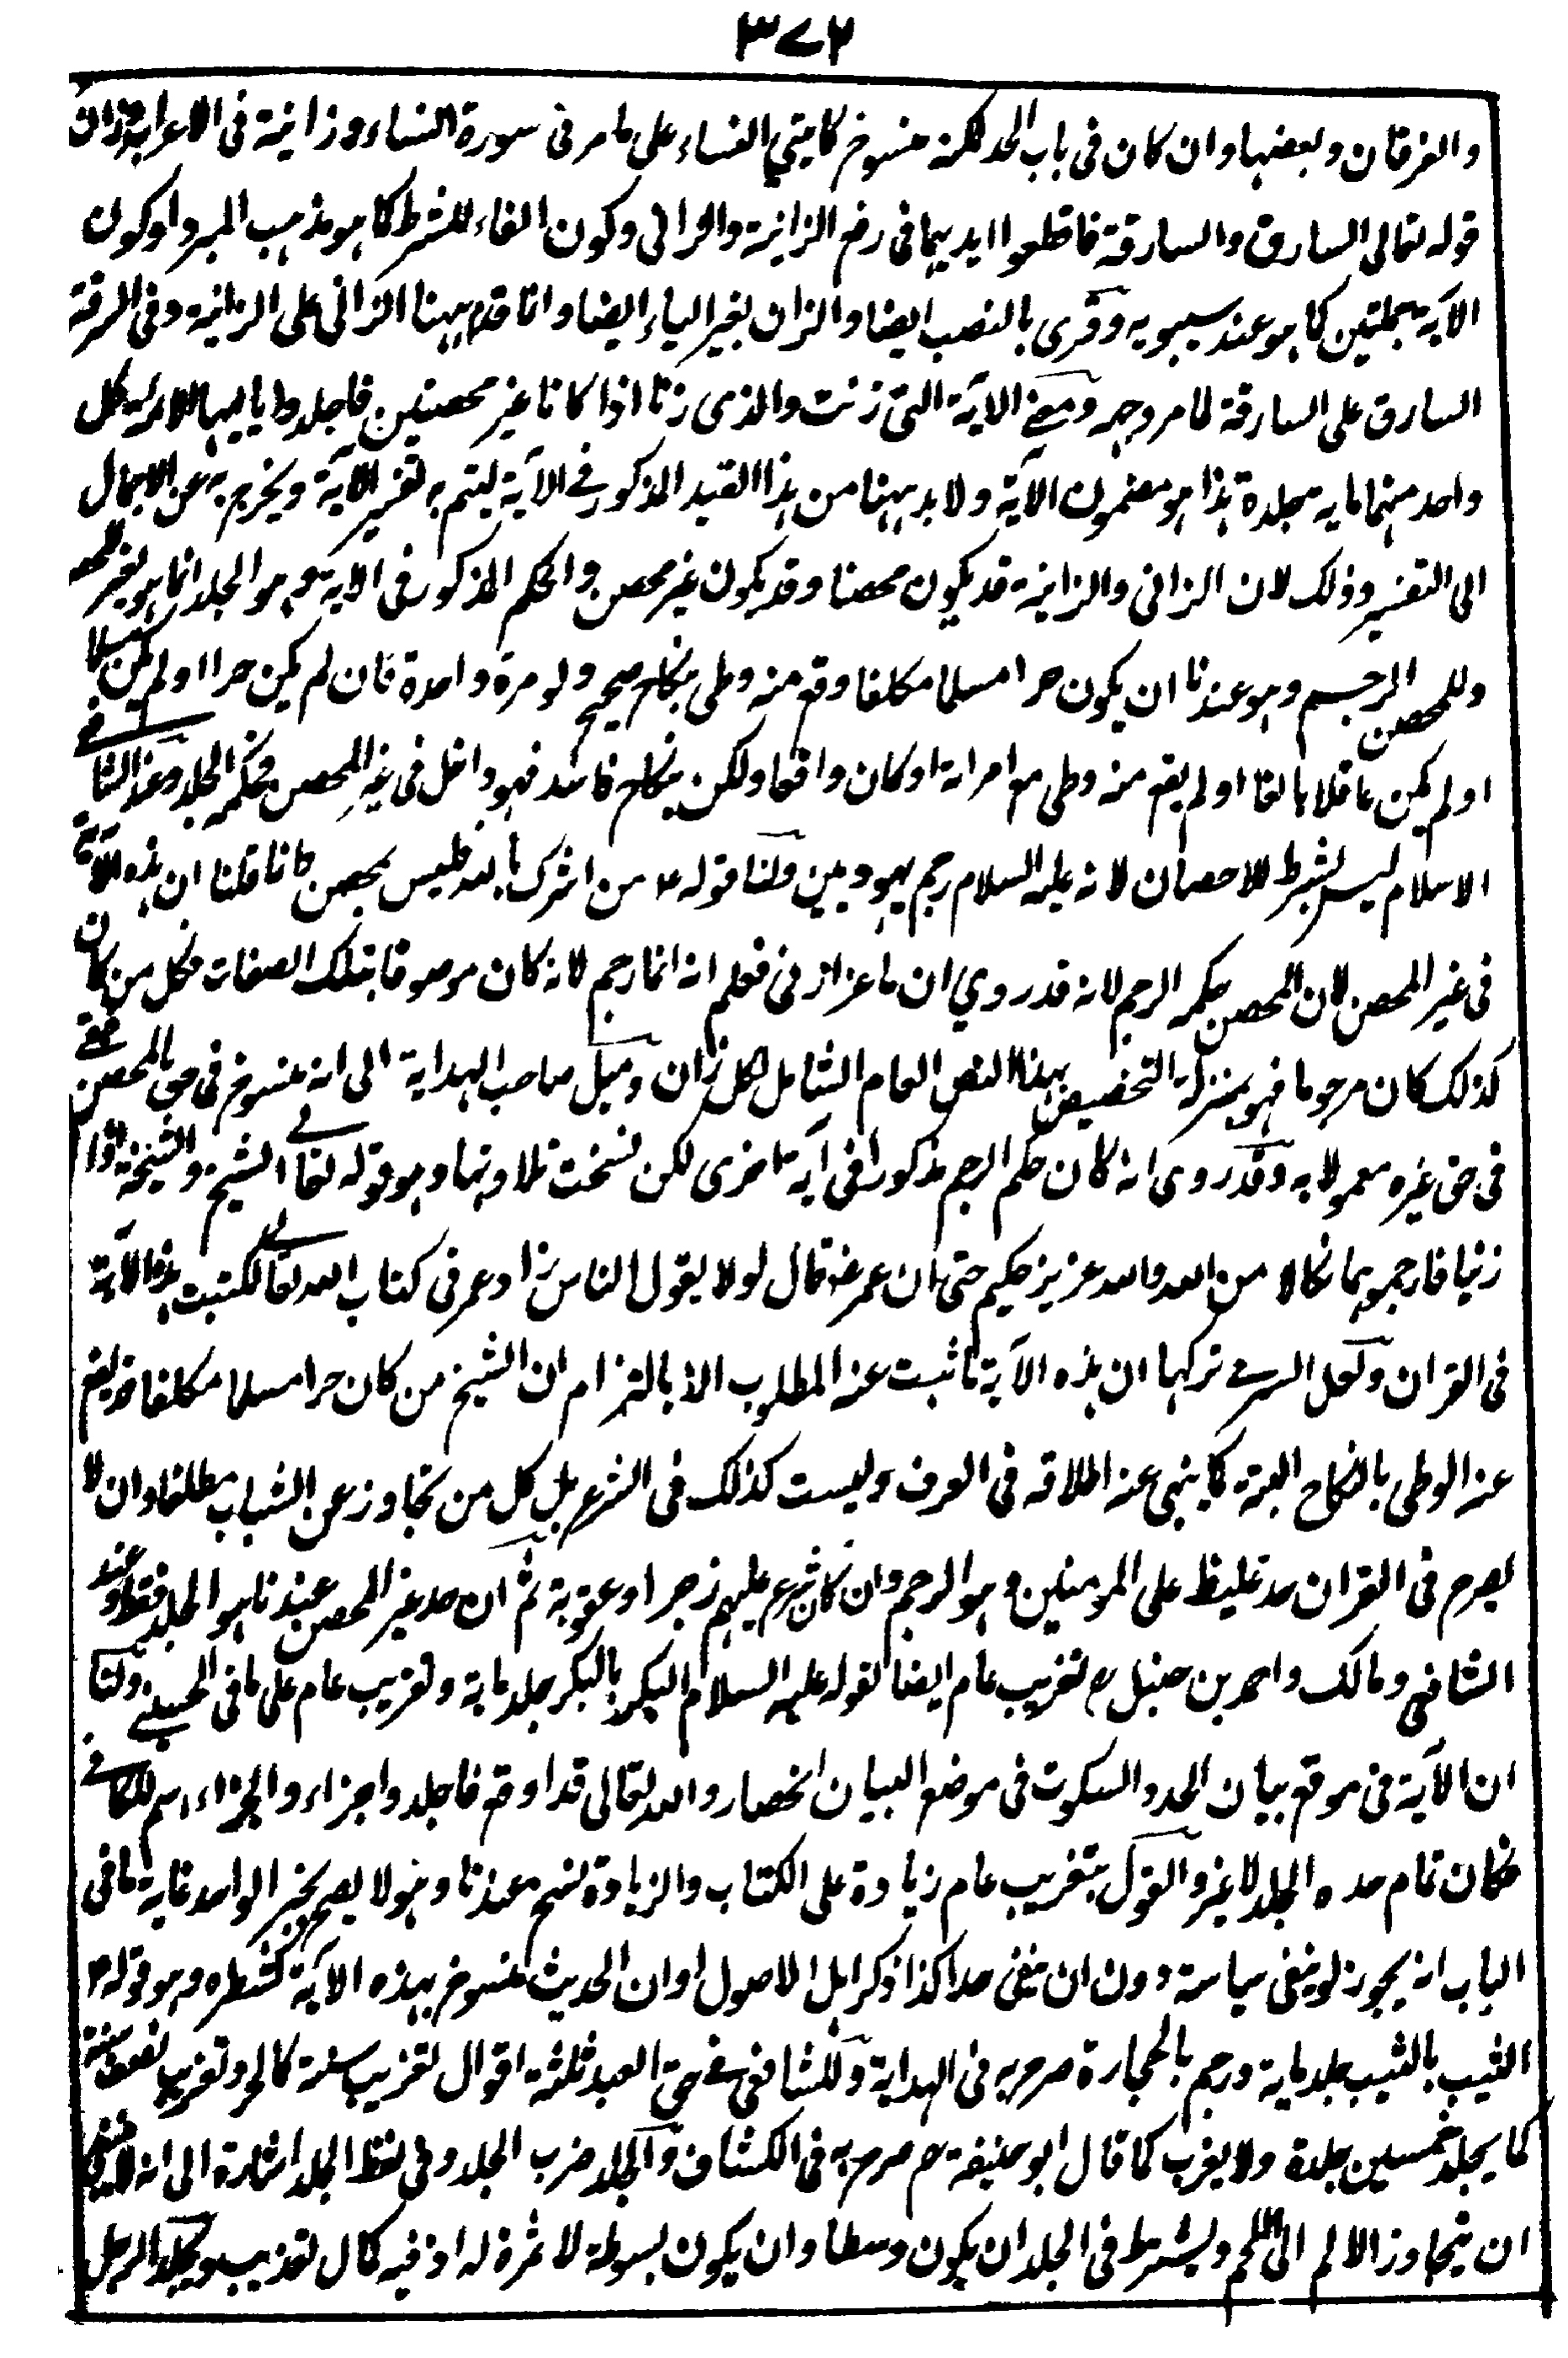 ٣٧٦
والفرقان وبعضها وان كان فى باب الحد لكنه منسوخ كآيتي النساء على ما مر فى سورة النساء وزانية فى الاعراب وزان
قوله تعالى السارق والسارقة فاقطعوا ايديهما فى رفع الزانية والزانى وكون الفاء للشرط كما هو مذهب المبرد او كون
الآية بجملتين كما هو عند سيبويه وقرى بالنصب ايضا والزان بغير الياء ايضا وانما قدم ههنا الزانى على الزانية وفى السرقة
السارق على السارقة لما مر وجهه ومعنے الآية التى زنت والذى زنا اذا كانا غير محصنين فاجلدوا يا ايها الائمة كل
واحد منهما ماية جلدة هذا هو مضمون الآية ولا بد ههنا من هذا القيد المذكور فے الآية ليتم به تفسير الآية ويخرج به عن الاجمال
الى التفسير وذلك لان الزانى والزانية قد يكون محصنا وقد يكون غير محصن والحكم المذكور فى الآية وهو الجلد انما هو لغير المحصن
وللمحصن الرجم وهو عندنا ان يكون حرا مسلما مكلفا وقع منه وطى بنكاح صحيح ولو مرة واحدة فان لم يكن حرا او لم يكن مسلما
او لم يكن عاقلا بالغا او لم يقع منه وطى مع امراته او كان واقعا ولكن بنكاح فاسد فهو داخل فى غير المحصن فحكمه الجلد وعند الشافعے
الاسلام ليس بشرط للاحصان لانه عليه السلام رجم يهوديين ولنا قوله ع من اشرك بالله فليس بمحصن وانما قلنا ان هذه الآية
فى غير المحصن لان المحصن حكمه الرجم لانه قد روي ان ماعزا زنى فعلم انه انما رجم لانه كان موصوفا بتلك الصفات فكل من كان
كذلك كان مرجوما فهو بمنزلة التخصيص بهذا النص العام الشامل لكل زان وميل صاحب الهداية الى انه منسوخ فى حق المحصن فبقے
فى حق غيره معمولا به وقد روى انه كان حكم الرجم مذكورا فى آية اخرى لكن نسخت تلاوتها وهو قوله تعالے الشيخ والشيخة اذا
زنيا فارجموهما نكالا من الله والله عزيز حكيم حتى ان عمر رض قال لولا يقول الناس زاد عمر فى كتاب الله تعالے لكتبت هذه الآية
فى القران ولعل السر فے تركها ان هذه الآية ما ثبت عنه المطلوب الا بالتزام ان الشيخ من كان حرا مسلما مكلفا قد يقع
عنه الوطى بالنكاح البتة كما ينبى عنه اطلاقه فى العرف وليست كذلك فى الشرع بل كل من تجاوز عن الشباب مطلقا وان لا
يصرح فى القران حد غليظ على المومنين وهو الرجم وان كان شرع عليهم زجرا وعقوبة ثم ان حد غير المحصن عندنا هو الجلد فقط وعند
الشافعى ومالك واحمد بن حنبل رح تغريب عام ايضا لقوله عليه السلام البكر بالبكر جلد ماية وتغريب عام على ما فى الحسينے ولنا
ان الآية فى موقع بيان الحد والسكوت فى موضع البيان انحصار والله تعالى قد اوقع فاجلدوا جزاء والجزاء اسم للكافے
فكان تمام حده الجلد لا غير والقول بتغريب عام زيادة على الكتاب والزيادة نسخ عندنا وهو لا يصح بخبر الواحد غاية ما فى
الباب انه يجوز لو ينفى سياسة دون ان ينفى حدا كذا ذكر اهل الاصول او ان الحديث منسوخ بهذه الآية كشطره وهو قوله ع
الثيب بالثيب جلد ماية ورجم بالحجارة صرح به فى الهداية وللشافعى فے حق العبد ثلثة اقوال تغريب سنة كالحر وتغريب نصف سنة
كما يجلد خمسين جلدة ولا يغرب كما قال ابو حنيفة رح صرح به فى الكشاف والجلد ضرب الجلد وفى لفظ الجلد اشارة الى انه لا ينبغى
ان يتجاوز الالم الى اللحم ويشترط فى الجلد ان يكون وسطا وان يكون بسوط لا ثمرة له اذ فيه كمال تعذيب ويجلد الرجل